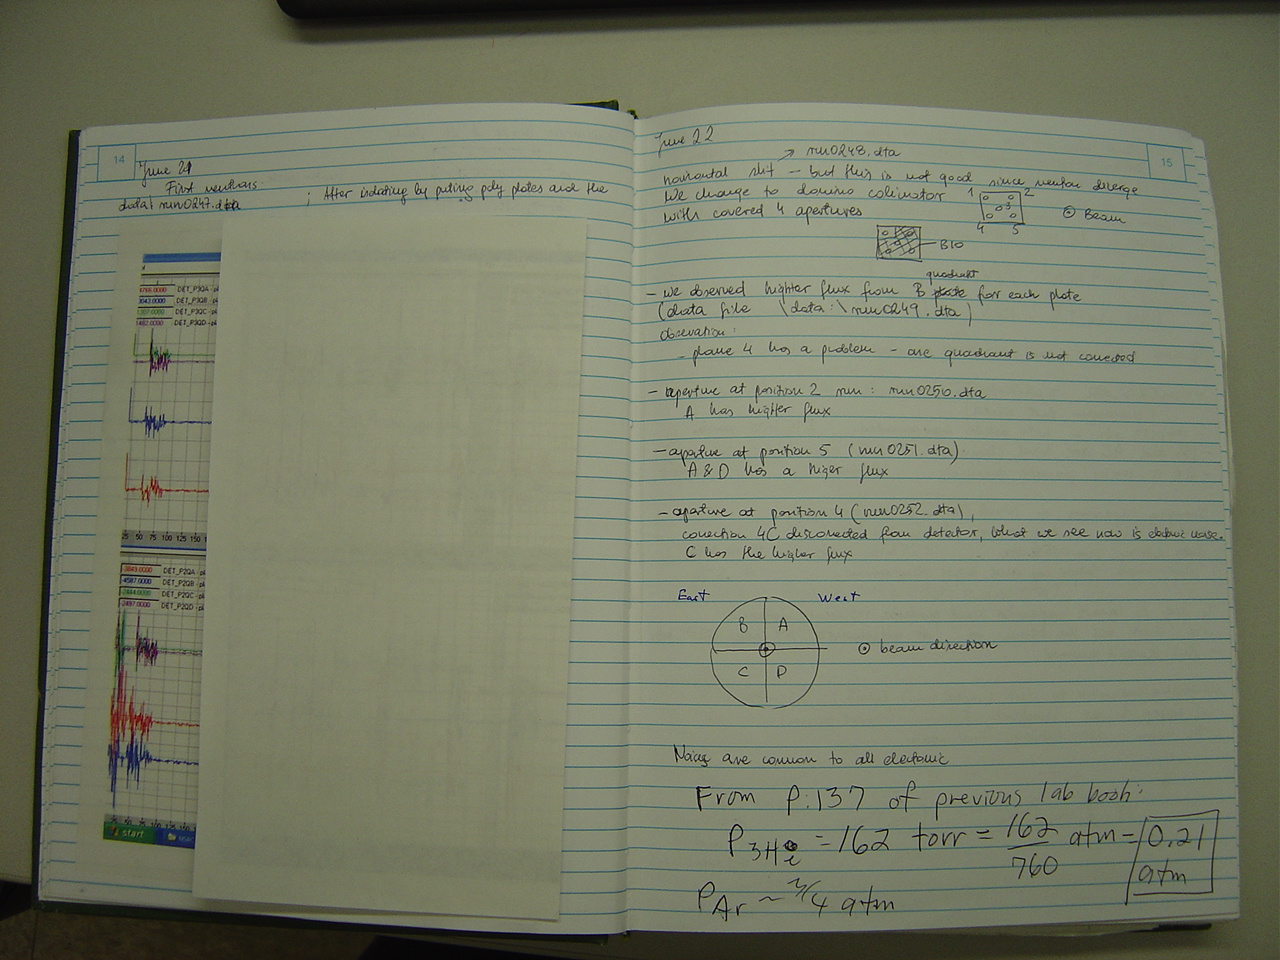 14
June 21
First neutrons:
data\run0247.dta
; After isolating by puting poly plates and the
-3766.0000 DET_P3QA - pl
3043.0000 DET_P3QB - p
DET_P3QC - pl
DET_P3QD - pl
25 50 75 100 125 150 1
-3843.0000 DET_P2QA - pl
-4587.0000 DET_P2QB - p
-2444.0000 DET_P2QC - p
-2497.0000 DET_P2QD - pl
start
15
June 22
→ run0248.dta
horizontal slit — but this is not good since neutron diverge
We change to domino colimator
with covered 4 apertures
1 2
3
4 5
⊙ Beam
B10
quadrant
- we observed higher flux from B plate for each plate
(data file \data:\run0249.dta)
obsevation:
- plane 4 has a problem - one quadrant is not conected
- aperture at position 2 run: run0250.dta
A has higher flux
- aperture at position 5 (run0251.dta)
A & D has a higer flux
- aperture at position 4 (run0252.dta),
conection 4C disconected from detector, what we see now is electronic noise.
C has the higher flux
East West
B A
C D
⊙ beam direction
are common to all electronic
From P.137 of previous lab book:
P3He = 162 torr = 162/760 atm = 0.21 atm
PAr ~ 3/4 atm